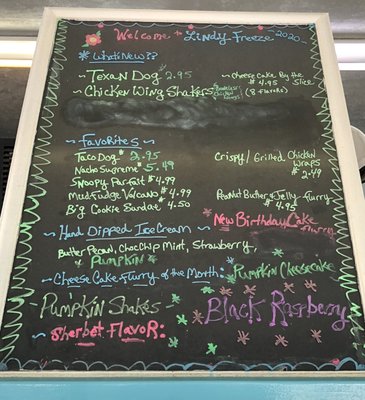 Welcome to Lindy Freeze 2020
What's New??
~ Texan Dog 2.95
~ Cheese Cake By the Slice $4.95
~ Chicken Wing Shakers (8 Flavors)
~ Favorites ~
Taco Dog $2.95
Nacho Supreme $5.49
Snoopy Parfait $4.99
Mud Fudge Volcano $4.99
Big Cookie Sundae $4.50
Crispy/Grilled Chicken Wraps $2.49
Peanut Butter & Jelly Flurry $4.95
~ New Birthday Cake Flurry
~ Hand Dipped Ice Cream ~
Butter Pecan, Choc Chip Mint, Strawberry, & Pumpkin
~ Cheese Cake Flurry of the Month: Pumpkin Cheesecake
~ Pumpkin Shakes
~ Sherbet Flavor:
Black Raspberry